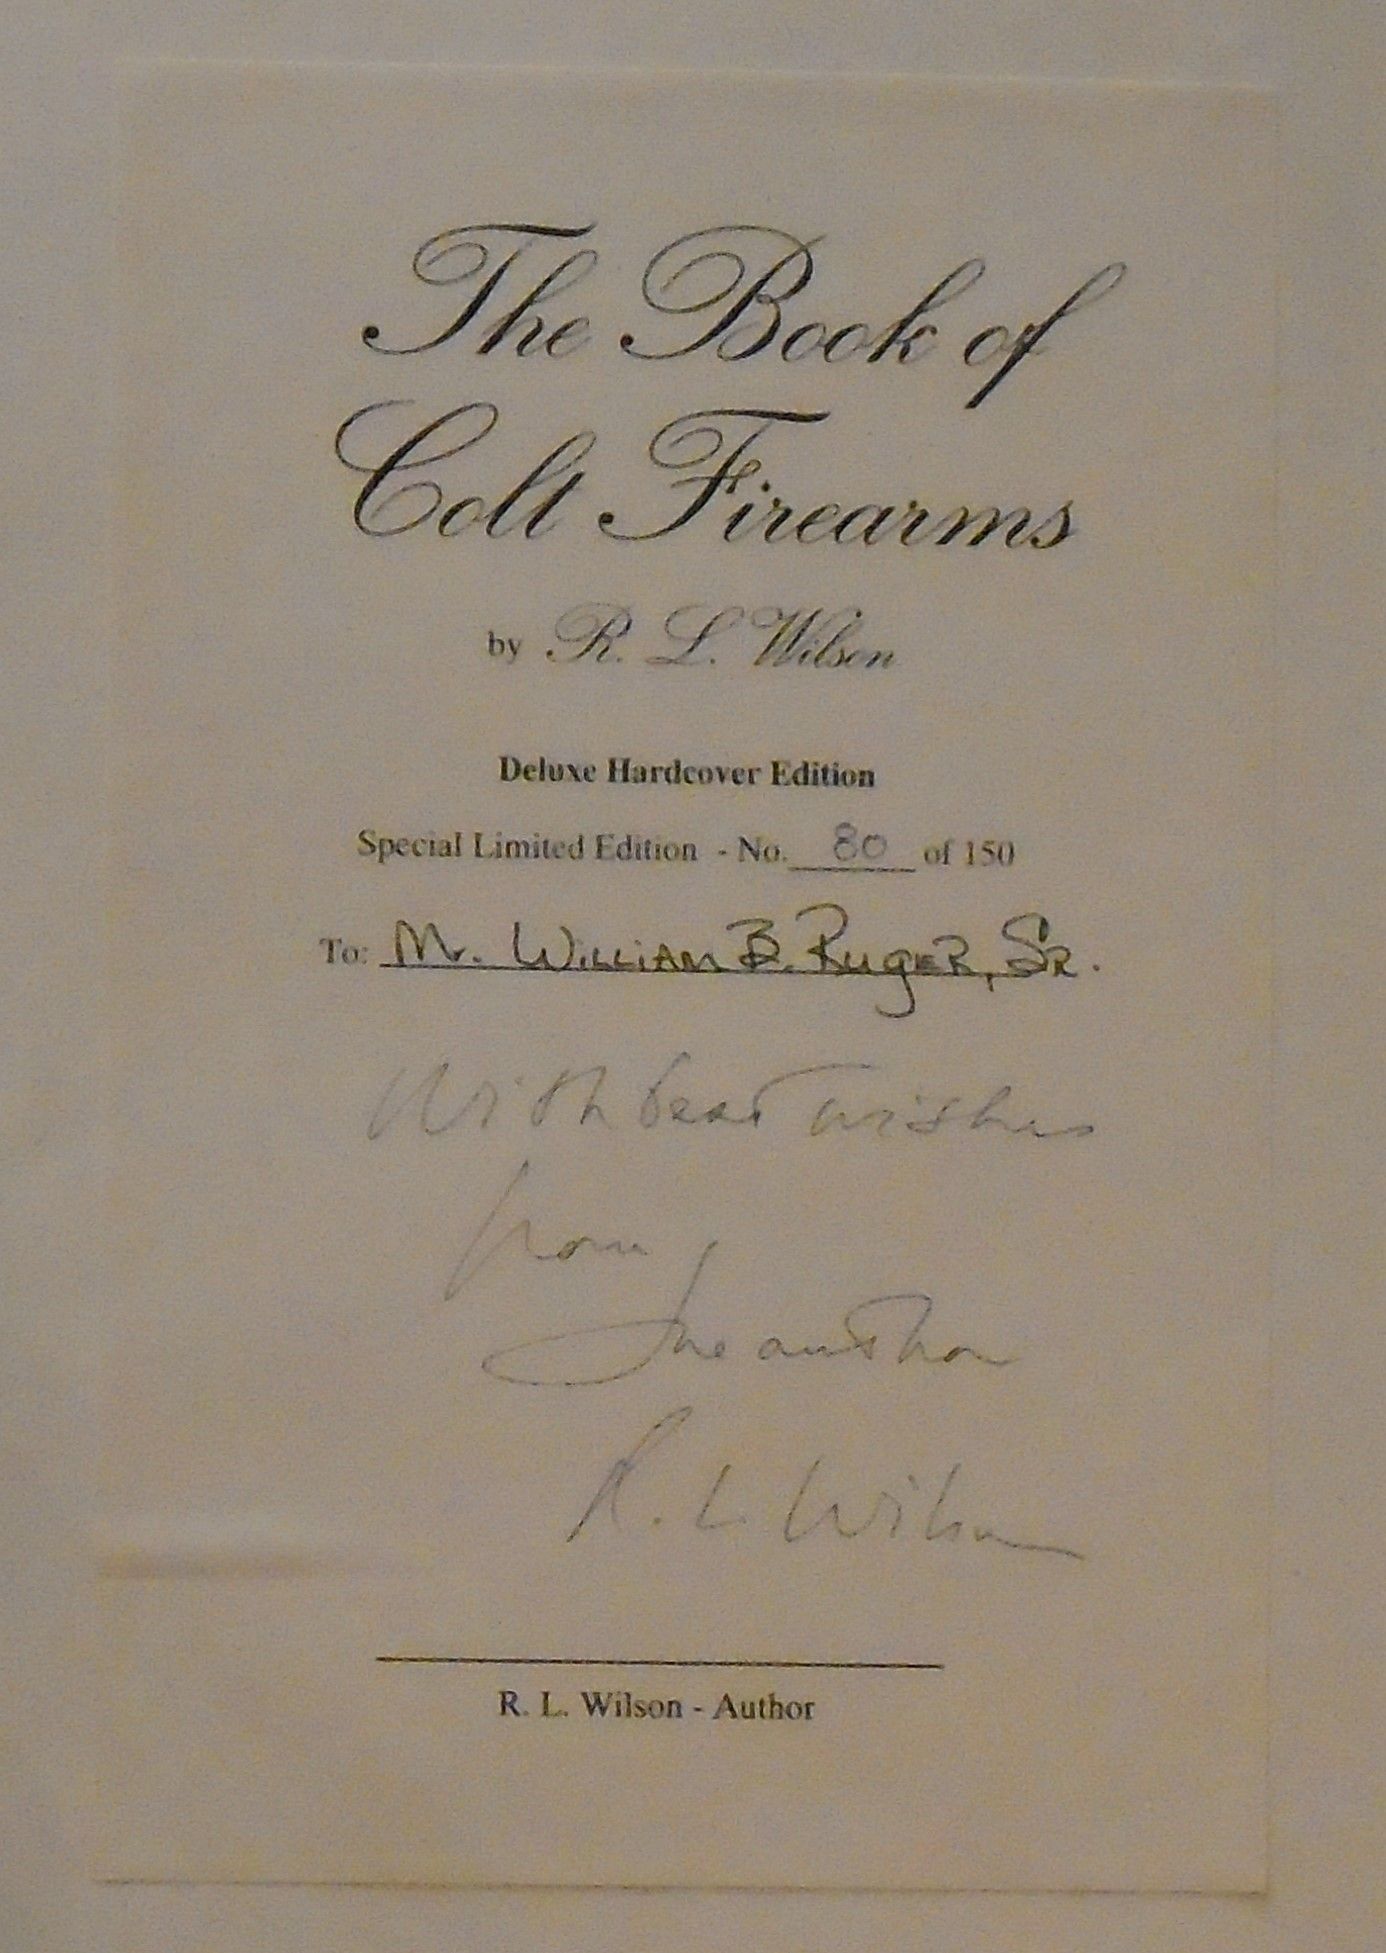 The Book of
Colt Firearms
by R. L. Wilson
Deluxe Hardcover Edition
Special Limited Edition - No. 80 of 150
To: Mr. William B. Ruger, Sr.
With best wishes
from
the author
R. L. Wilson
R. L. Wilson - Author